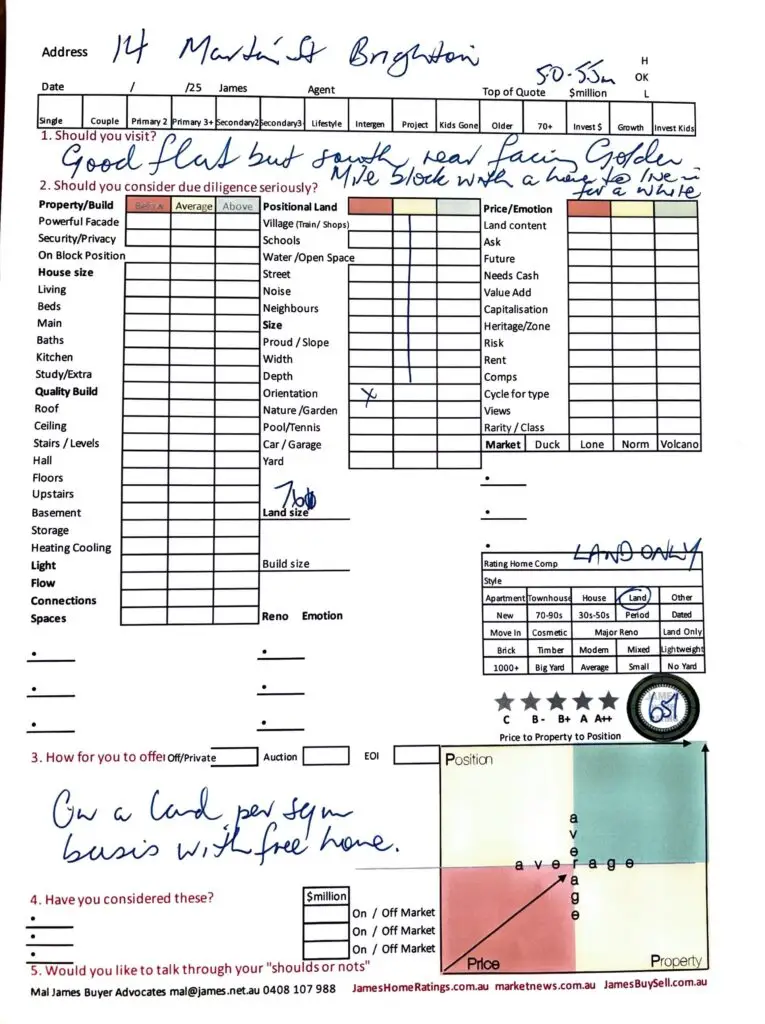 Address 14 Martin St Brighton
5.0-5.5m
H
OK
L
Date / /25 James Agent Top of Quote $million
Single Couple Primary 2 Primary 3+ Secondary2 Secondary3 Lifestyle Intergen Project Kids Gone Older 70+ Invest $ Growth Invest Kids
1. Should you visit?
Good flat but south rear facing Golden
Mile block with a home to live in
for a while
2. Should you consider due diligence seriously?
Property/Build Below Average Above Positional Land Price/Emotion
Powerful Facade Village (Train/ Shops) Land content
Security/Privacy Schools Ask
On Block Position Water /Open Space Future
House size Street Needs Cash
Living Noise Value Add
Beds Neighbours Capitalisation
Main Size Heritage/Zone
Baths Proud / Slope Risk
Kitchen Width Rent
Study/Extra Depth Comps
Quality Build Orientation X Cycle for type
Roof Nature /Garden Views
Ceiling Pool/Tennis Rarity / Class
Stairs / Levels Car / Garage Market Duck Lone Norm Volcano
Hall Yard
Floors
Upstairs
Basement Land size
Storage
Heating Cooling
Light Build size
Flow
Connections
Spaces Reno Emotion
LAND ONLY
Rating Home Comp
Style
Apartment Townhouse House Land Other
New 70-90s 30s-50s Period Dated
Move In Cosmetic Major Reno Land Only
Brick Timber Modern Mixed Lightweight
1000+ Big Yard Average Small No Yard
C B- B+ A A++
651
Price to Property to Position
3. How for you to offer Off/Private Auction EOI
On a land per sqm
basis with free home.
Position
average
average
Price
Property
4. Have you considered these? $million
On / Off Market
On / Off Market
On / Off Market
5. Would you like to talk through your "shoulds or nots"
Mal James Buyer Advocates mal@james.net.au 0408 107 988 JamesHomeRatings.com.au marketnews.com.au JamesBuySell.com.au